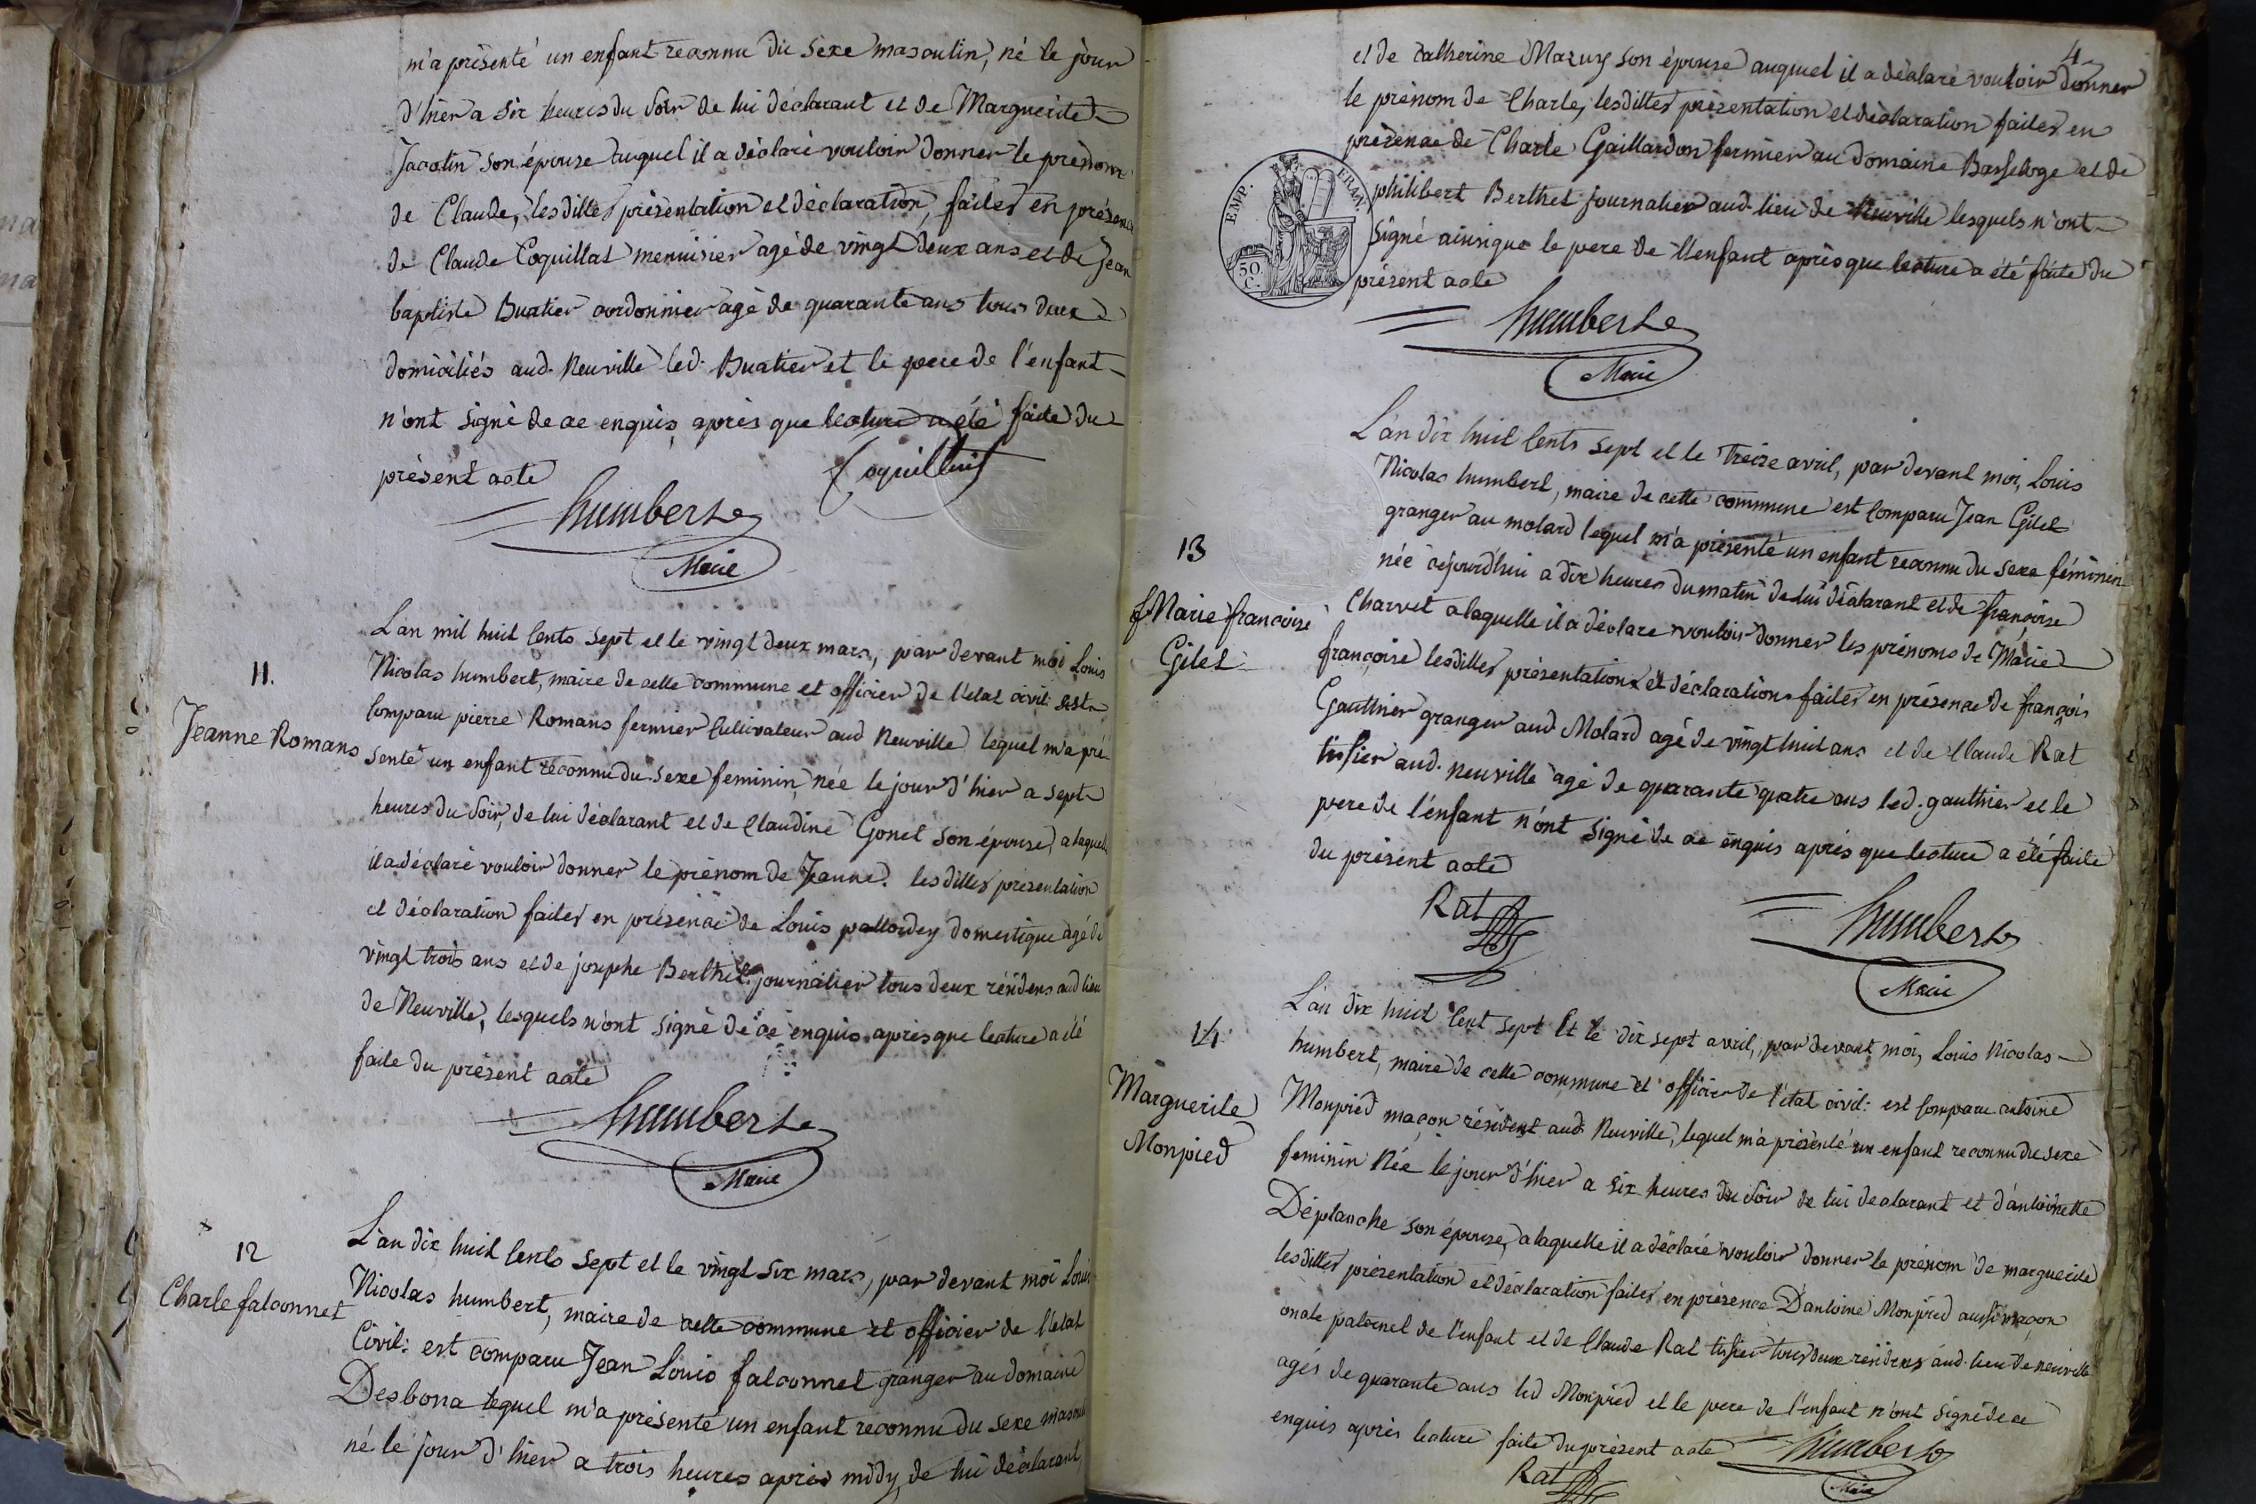 m'a présenté un enfant reconnu du sexe masculin, né le jour
d'hier a six heures du soir de lui déclarant et de Marguerite
Jacotin son épouse auquel il a déclaré vouloir donner le prénom
de Claude, lesdittes présentation et déclaration, faites en présence
de Claude Coquillat menuisier agé de vingt deux ans et de Jean
baptiste Buatier cordonnier agé de quarante ans tous deux
domiciliés aud. Neuville led. Buatier et le pere de l'enfant
n'ont signé de ce enquis, après que lecture a été faite du
présent acte
Coquillat
humbert
Maire
11.
Jeanne Romans
L'an mil huit Cents sept et le vingt deux mars, par devant moi Louis
Nicolas humbert, maire de cette commune et officier de l'etat civil est
Comparu pierre Romans fermier Cultivateur aud Neuville lequel m'a pré
senté un enfant reconnu du sexe feminin, née le jour d'hier a sept
heures du soir, de lui déclarant et de Claudine Gonet son épouse, a laquelle
il a déclaré vouloir donner le prénom de Jeanne. lesdittes présentation
et déclaration faites en présence de Louis domestique agé de
vingt trois ans et de josephe Berthet journalier tous deux résidens aud lieu
de Neuville, lesquels n'ont signé de ce enquis après que lecture a été
faite du présent acte
humbert
Maire
12
Charle falconnet
L'an dix huit Cents sept et le vingt six mars, par devant moi Louis
Nicolas humbert, maire de cette commune et officier de l'état
Civil: est comparu Jean Louis falconnet granger au domaine
Desbona lequel m'a présenté un enfant reconnu du sexe masculin
né le jour d'hier a trois heures après midy de lui déclarant,
4
et de Catherine Mazuy son épouse auquel il a déclaré vouloir donner
le prénom de Charle, lesdittes présentation et déclaration faites en
présence de Charle Gaillardon fermier au domaine Basseloge et de
philibert Berthet journalier aud. lieu de Neuville lesquels n'ont
signé ainsi que le pere de l'enfant après que lecture a été faite du
présent acte
EMP. FRAN.
50 C.
humbert
Maire
13
Marie françoise
Gilet
L'an dix huit Cents sept et le treize avril, par devant moi, Louis
Nicolas humbert, maire de cette commune est Comparu Jean Gilet
granger au molard lequel m'a présenté un enfant reconnu du sexe féminin
née cejourd'hui a dix heures du matin de lui déclarant et de françoise
Charvet a laquelle il a déclare vouloir donner les prénoms de Marie
françoise lesdittes présentation et déclaration faites en présence de françois
Gautthier granger aud Molard agé de vingt huit ans et de Claude Rat
tissier aud. neuville agé de quarante quatre ans led. gautthier et le
pere de l'enfant n'ont signé de ce enquis après que lecture a été faite
du présent acte
Rat
humbert
Maire
14
Marguerite
Monpied
L'an dix huit Cent sept Et le dix sept avril, par devant moi, Louis Nicolas
humbert, maire de cette commune et officier de l'état civil: est Comparu antoine
Monpied maçon résident aud Neuville, lequel m'a présenté un enfant reconnu du sexe
feminin Née le jour d'hier a six heures du soir de lui déclarant et d'antoinette
Déplanche son épouse, a laquelle il a déclaré vouloir donner le prénom de marguerite
lesdittes présentation et déclaration faites en présence D'antoine Monpied aussi maçon
oncle paternel de l'enfant et de Claude Rat tissier tous deux résidens aud. lieu de neuville
agés de quarante ans led Monpied et le pere de l'enfant n'ont signé de ce
enquis après lecture faite du présent acte
humbert
Maire
Rat